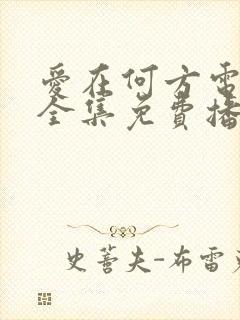 爱在何方電
全集免費播
史蒂夫-布雷